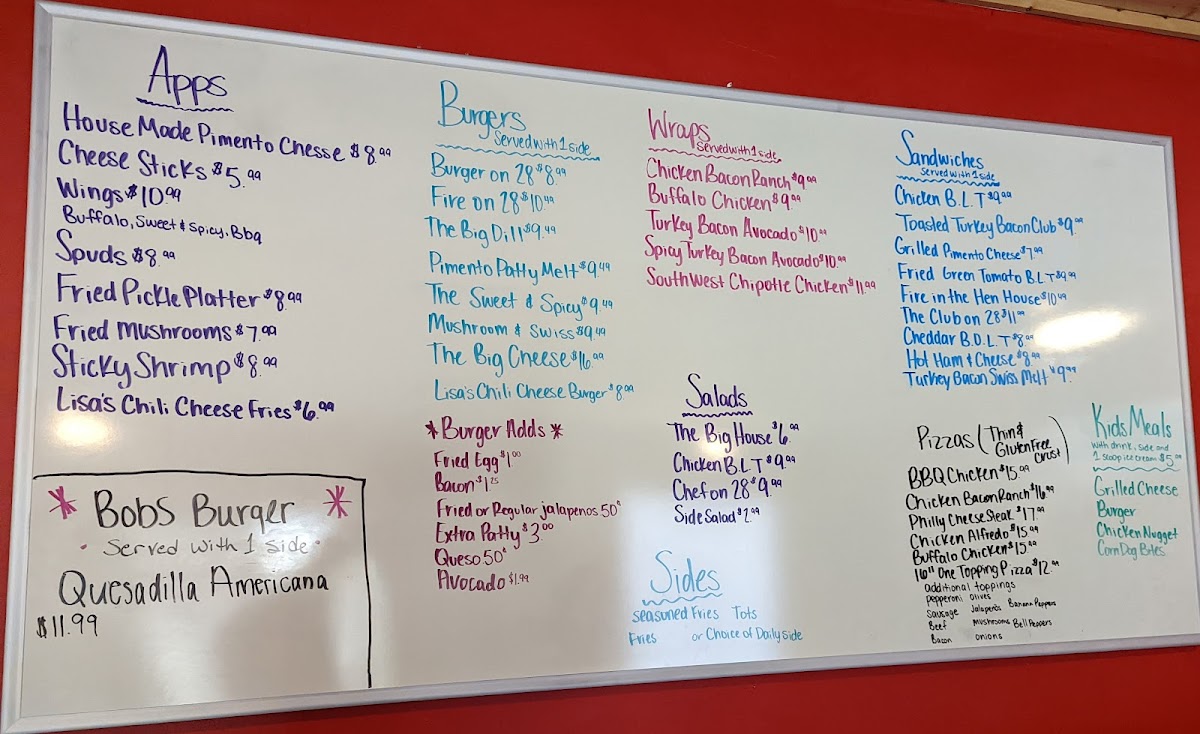 Apps
House Made Pimento Chesse $8.99
Cheese Sticks $5.99
Wings $10.99
Buffalo, Sweet & Spicy, Bbq
Spuds $8.99
Fried Pickle Platter $8.99
Fried Mushrooms $7.99
Sticky Shrimp $8.99
Lisa's Chili Cheese Fries $6.99
* Bobs Burger *
• Served with 1 side •
Quesadilla Americana
$11.99
Burgers
Served with 1 side
Burger on 28 $8.99
Fire on 28 $10.49
The Big Dill $9.49
Pimento Patty Melt $9.49
The Sweet & Spicy $9.49
Mushroom & Swiss $9.49
The Big Cheese $16.99
Lisa's Chili Cheese Burger $8.99
* Burger Adds *
Fried Egg $1.00
Bacon $1.25
Fried or Regular jalapenos 50¢
Extra Patty $3.00
Queso 50¢
Avocado $1.99
Wraps
Served with 1 side
Chicken Bacon Ranch $9.99
Buffalo Chicken $9.99
Turkey Bacon Avocado $10.99
Spicy Turkey Bacon Avocado $10.99
SouthWest Chipotle Chicken $11.99
Salads
The Big House $6.99
Chicken B.L.T $9.99
Chef on 28 $9.99
Side Salad $2.99
Sides
seasoned Fries Tots
Fries or Choice of Daily side
Sandwiches
Served with 1 side
Chicken B.L.T $9.99
Toasted Turkey Bacon Club $9.99
Grilled Pimento Cheese $7.99
Fried Green Tomato B.L.T $9.99
Fire in the Hen House $10.49
The Club on 28 $11.99
Cheddar B.O.L.T $8.99
Hot Ham & Cheese $8.99
Turkey Bacon Swiss Melt $9.99
Pizzas (Thin &
Gluten Free
Crust)
BBQ Chicken $15.99
Chicken Bacon Ranch $16.99
Philly Cheese Steak $17.99
Chicken Alfredo $15.99
Buffalo Chicken $15.99
16" One Topping Pizza $12.99
additional toppings
pepperoni olives
Sausage Jalapeños Banana Peppers
Beef Mushrooms Bell Peppers
Bacon onions
Kids Meals
with drink, side and
1 scoop ice cream $5.99
Grilled Cheese
Burger
Chicken Nugget
Corn Dog Bites